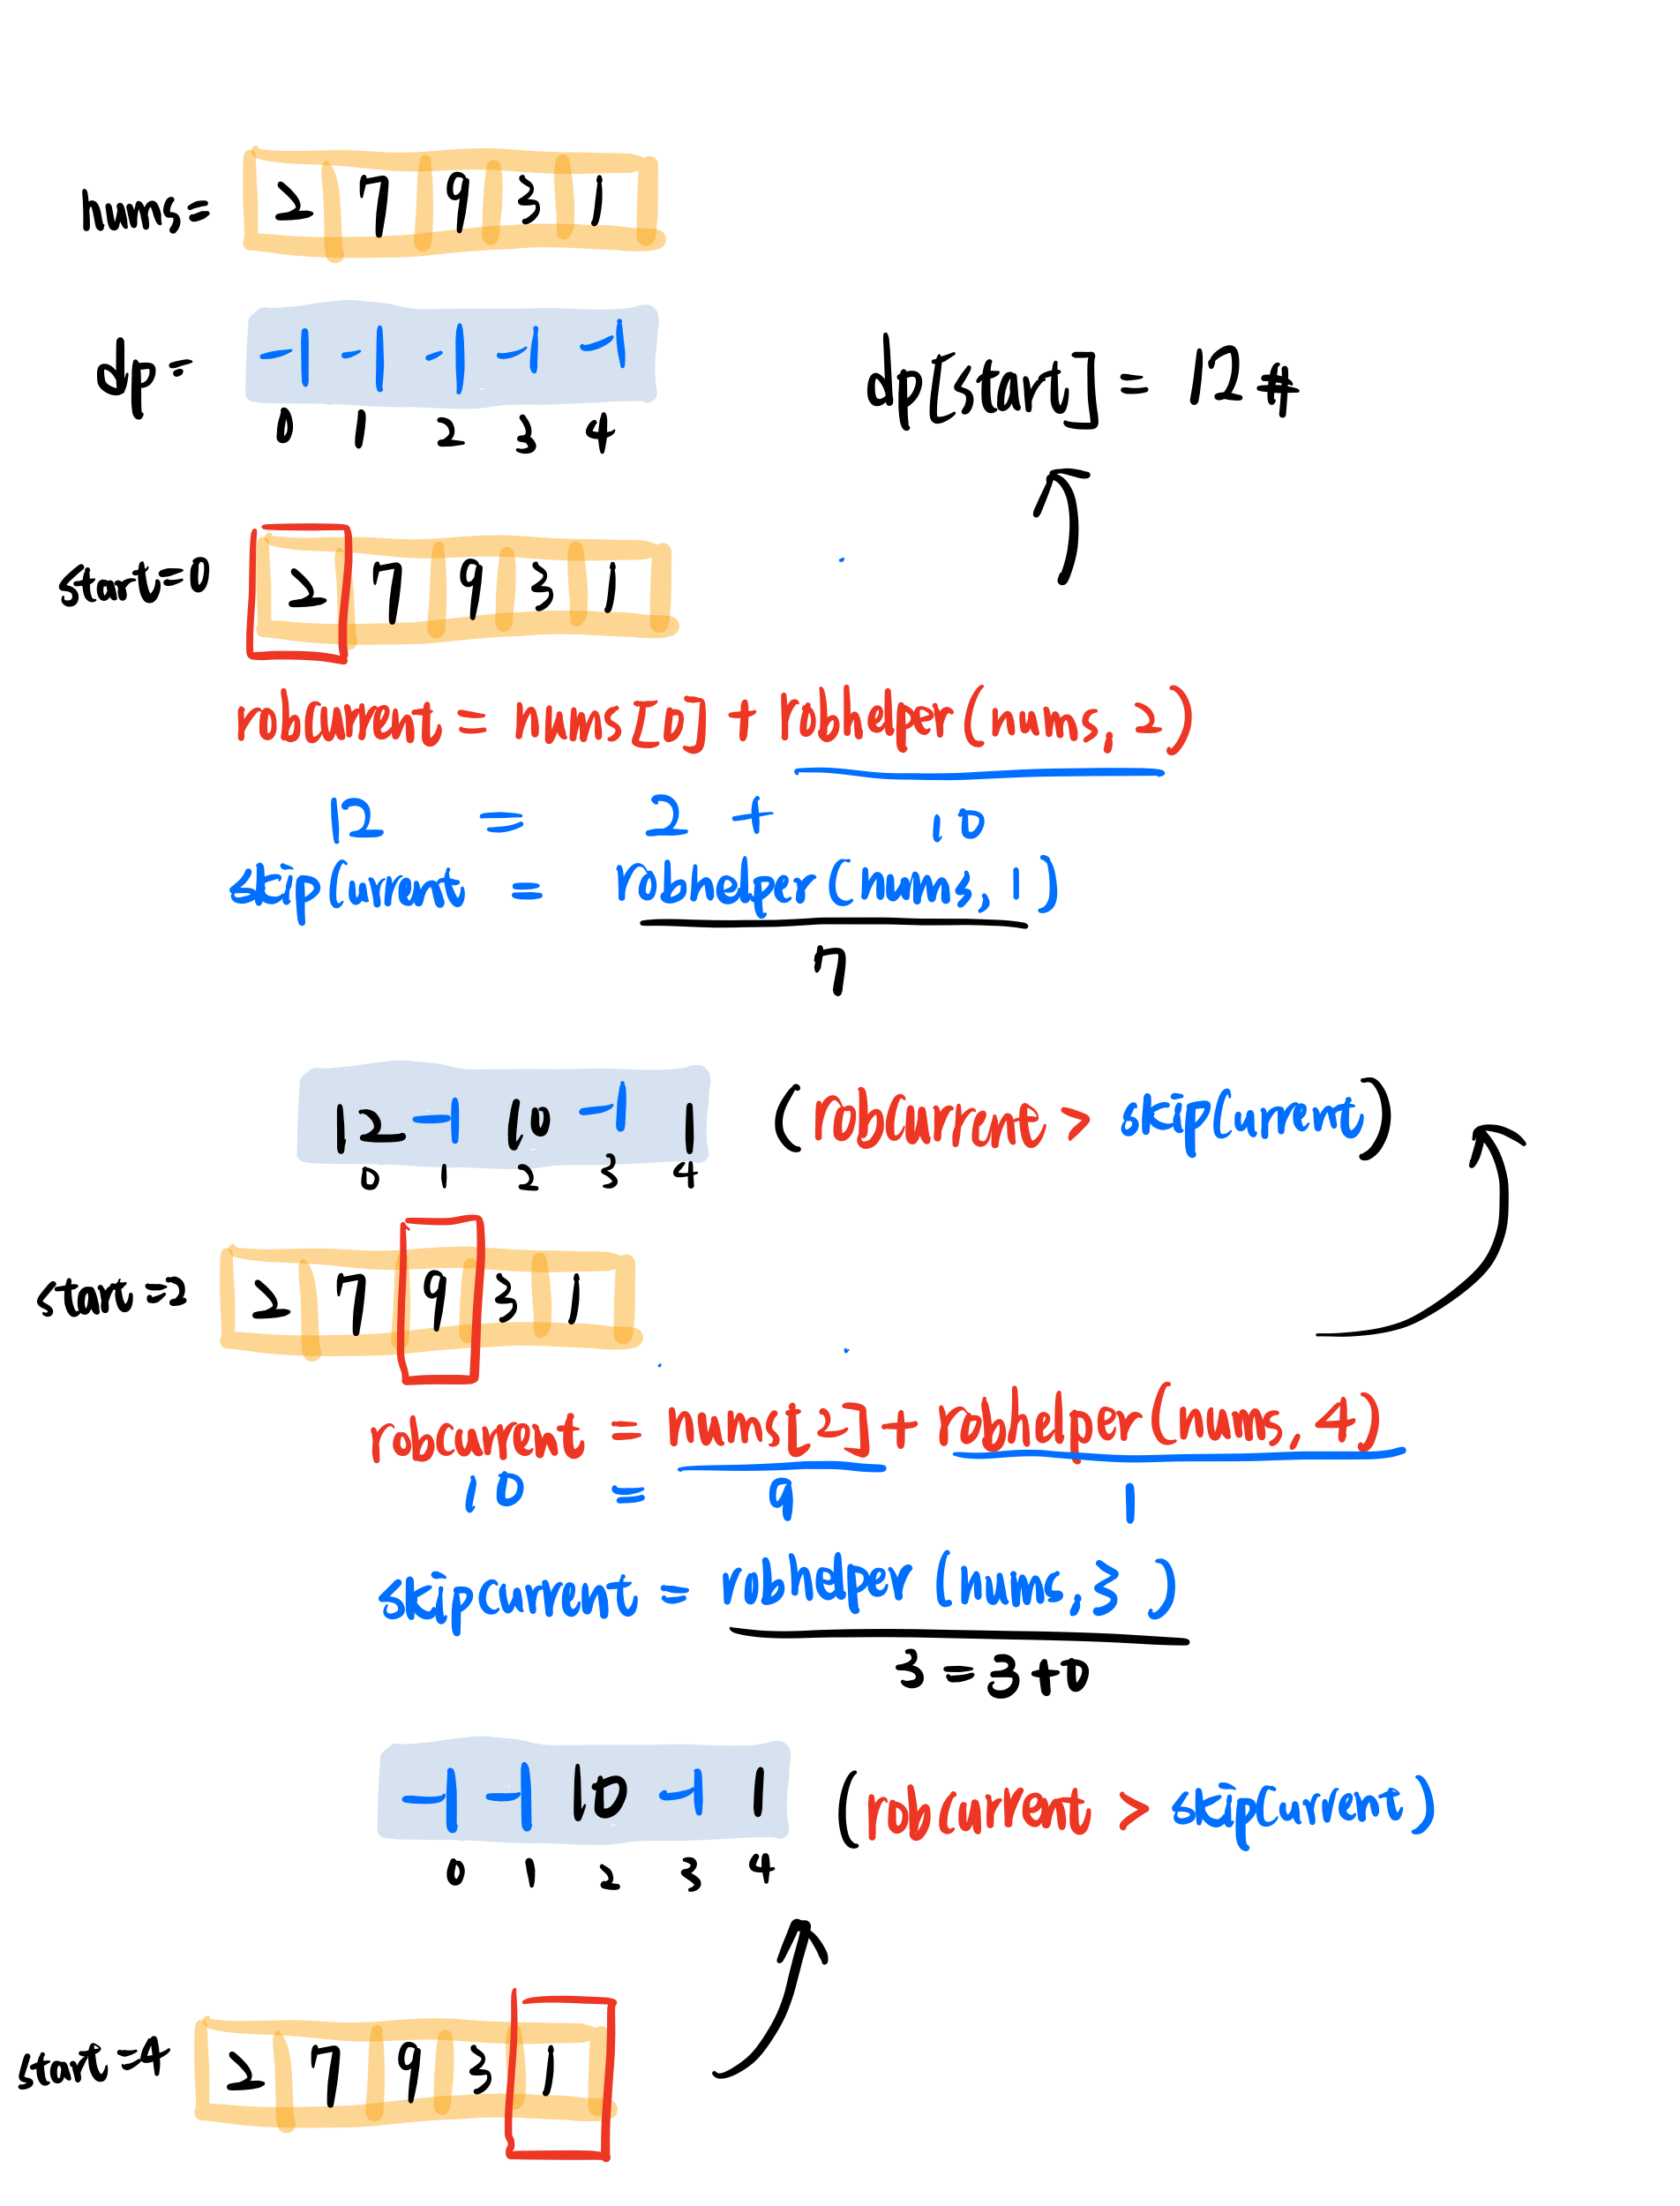 nums= 2 7 9 3 1
dp= -1 -1 -1 -1 -1
0 1 2 3 4
dp[start] = 12 #
start=0 2 7 9 3 1
robcurrent = nums[0] + robhelper(nums, 2)
12 = 2 + 10
skipCurrent = robhelper(nums, 1)
7
12 -1 10 -1 1 (robcurrent > skipCurrent)
0 1 2 3 4
start=2 2 7 9 3 1
robcurrent = nums[2] + robhelper(nums, 4)
10 = 9 1
skipcurrent = robhelper(nums, 3)
3 = 3+0
-1 -1 10 -1 1 (robCurrent > skipCurrent)
0 1 2 3 4
start=4 2 7 9 3 1